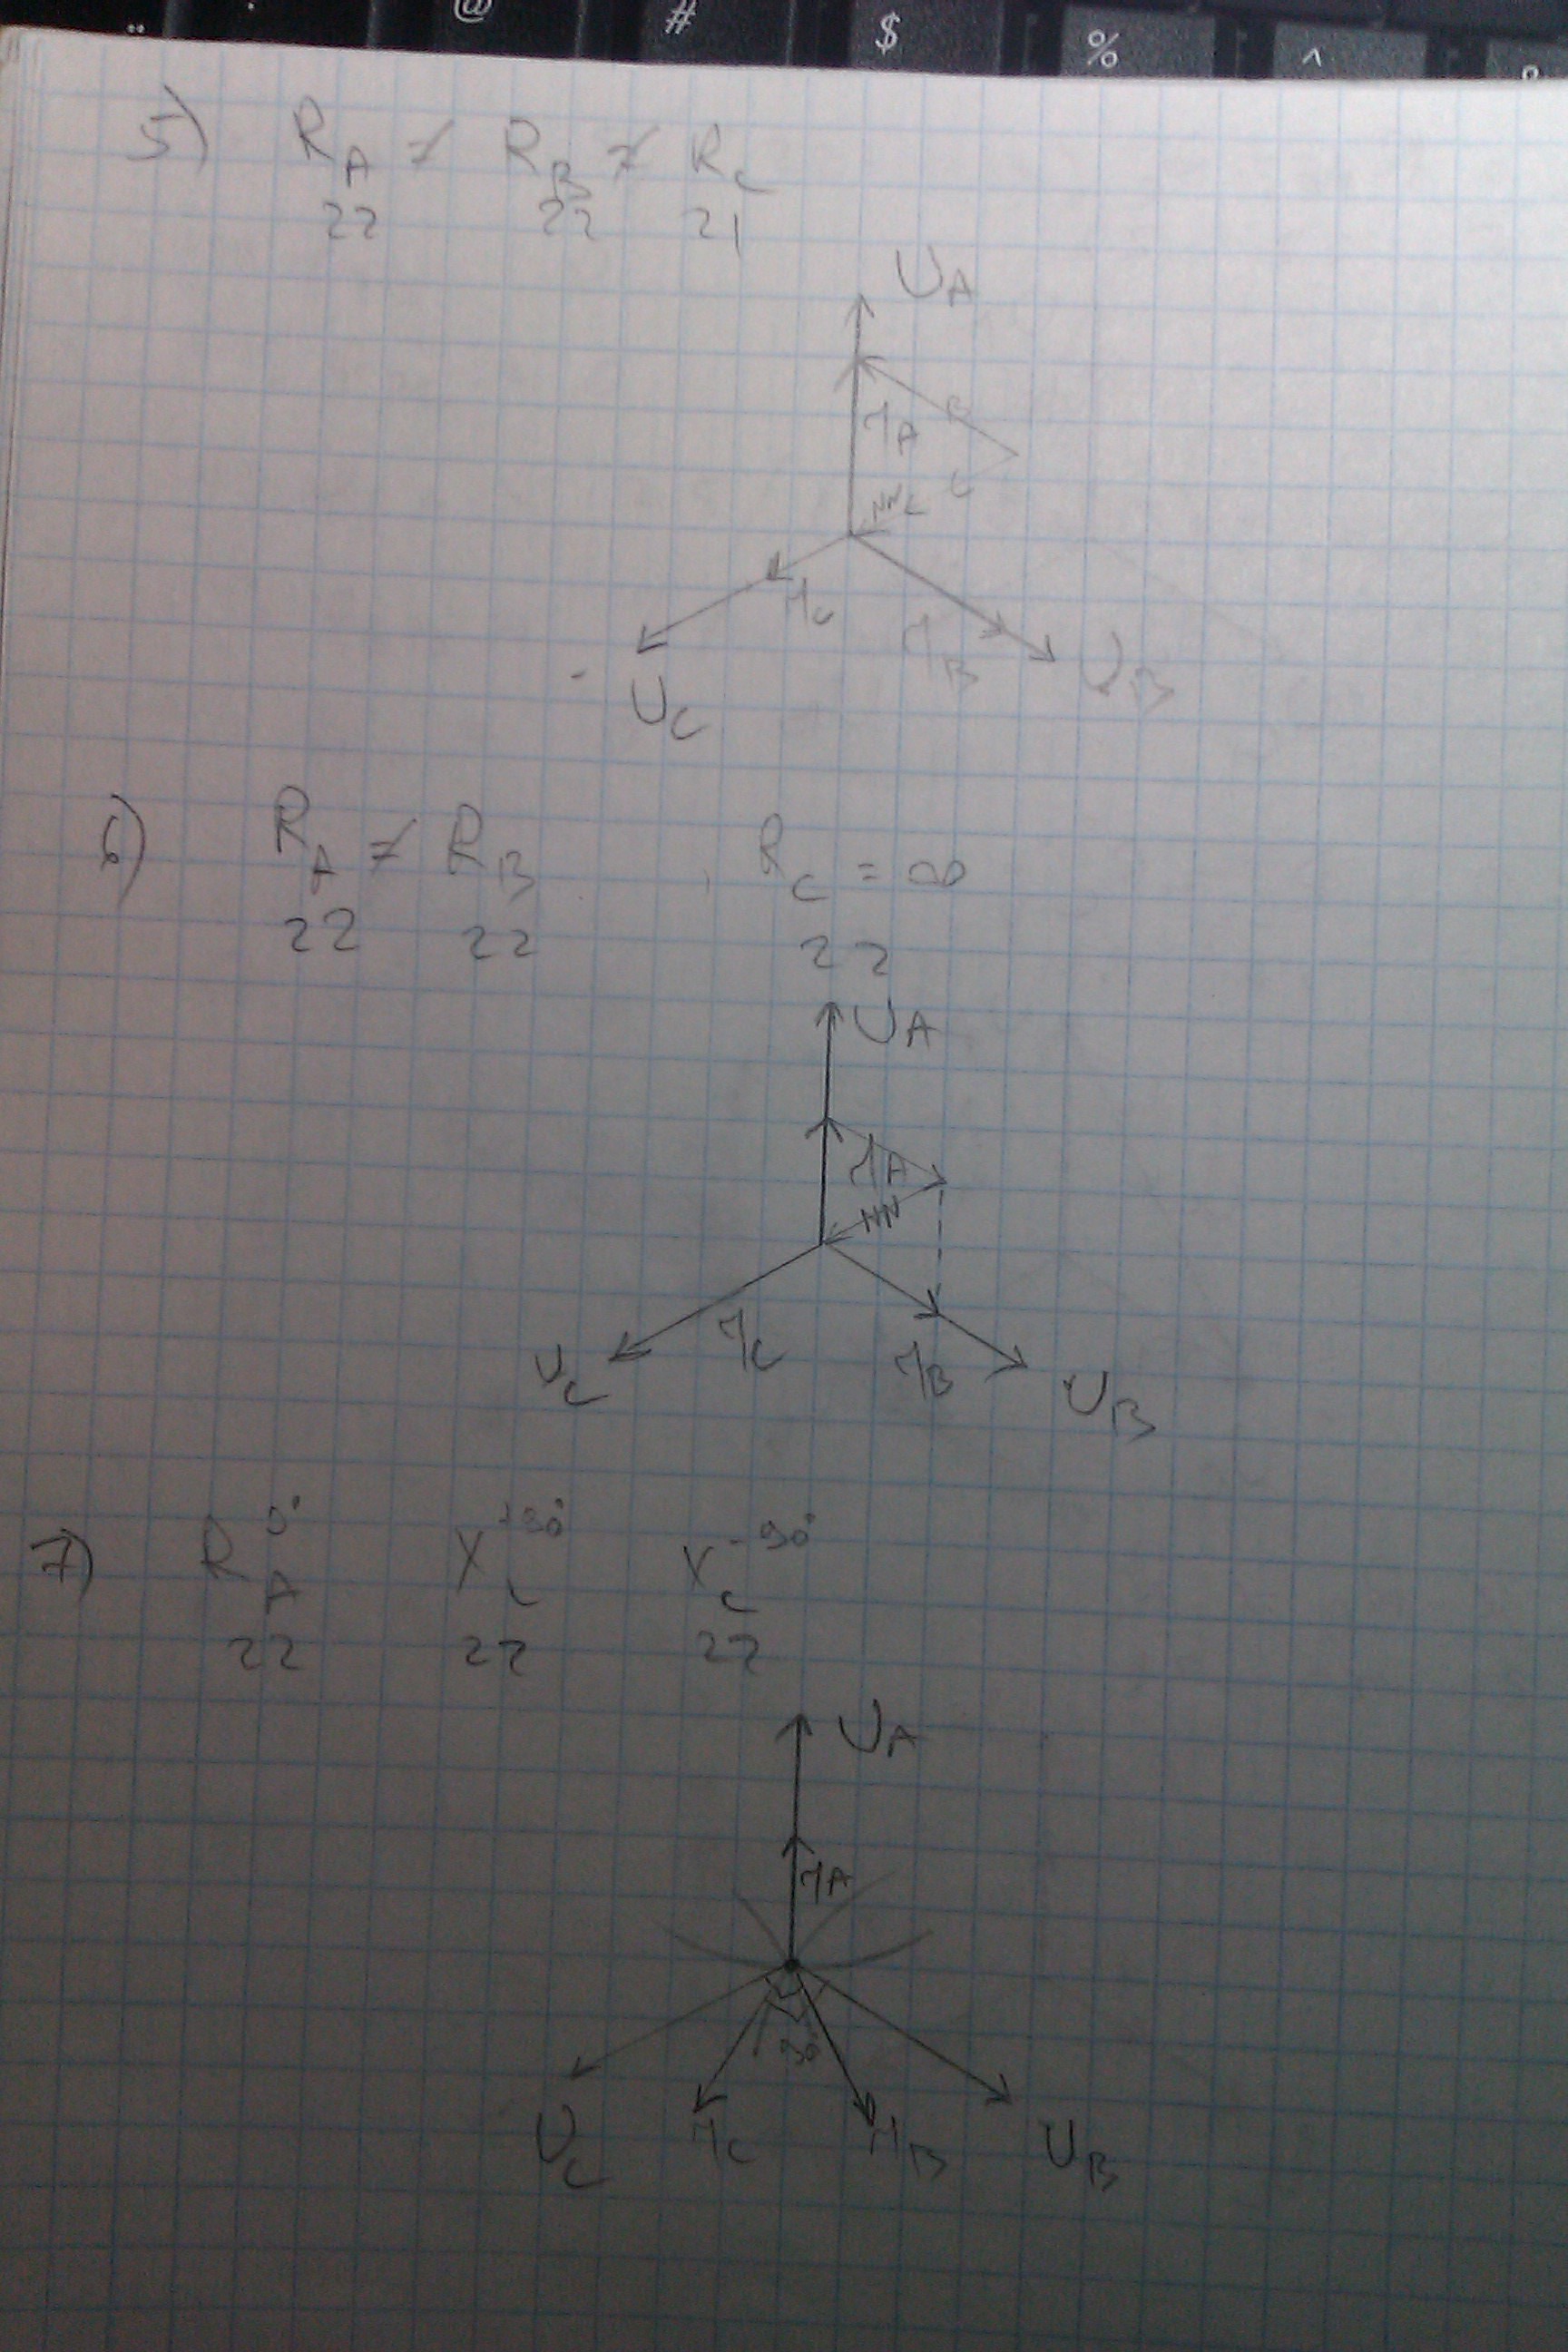 @ # $ % ^
5) R_A ≠ R_B ≠ R_C
22 22 21
U_A
I_A
I_C
I_B
U_B
U_C
6) R_A ≠ R_B , R_C = ∞
22 22 22
U_A
I_A
I_C
I_B
U_C
U_B
7) R_A^0° X_L^+90° X_C^-90°
22 22 22
U_A
I_A
90
U_C I_C I_B U_B